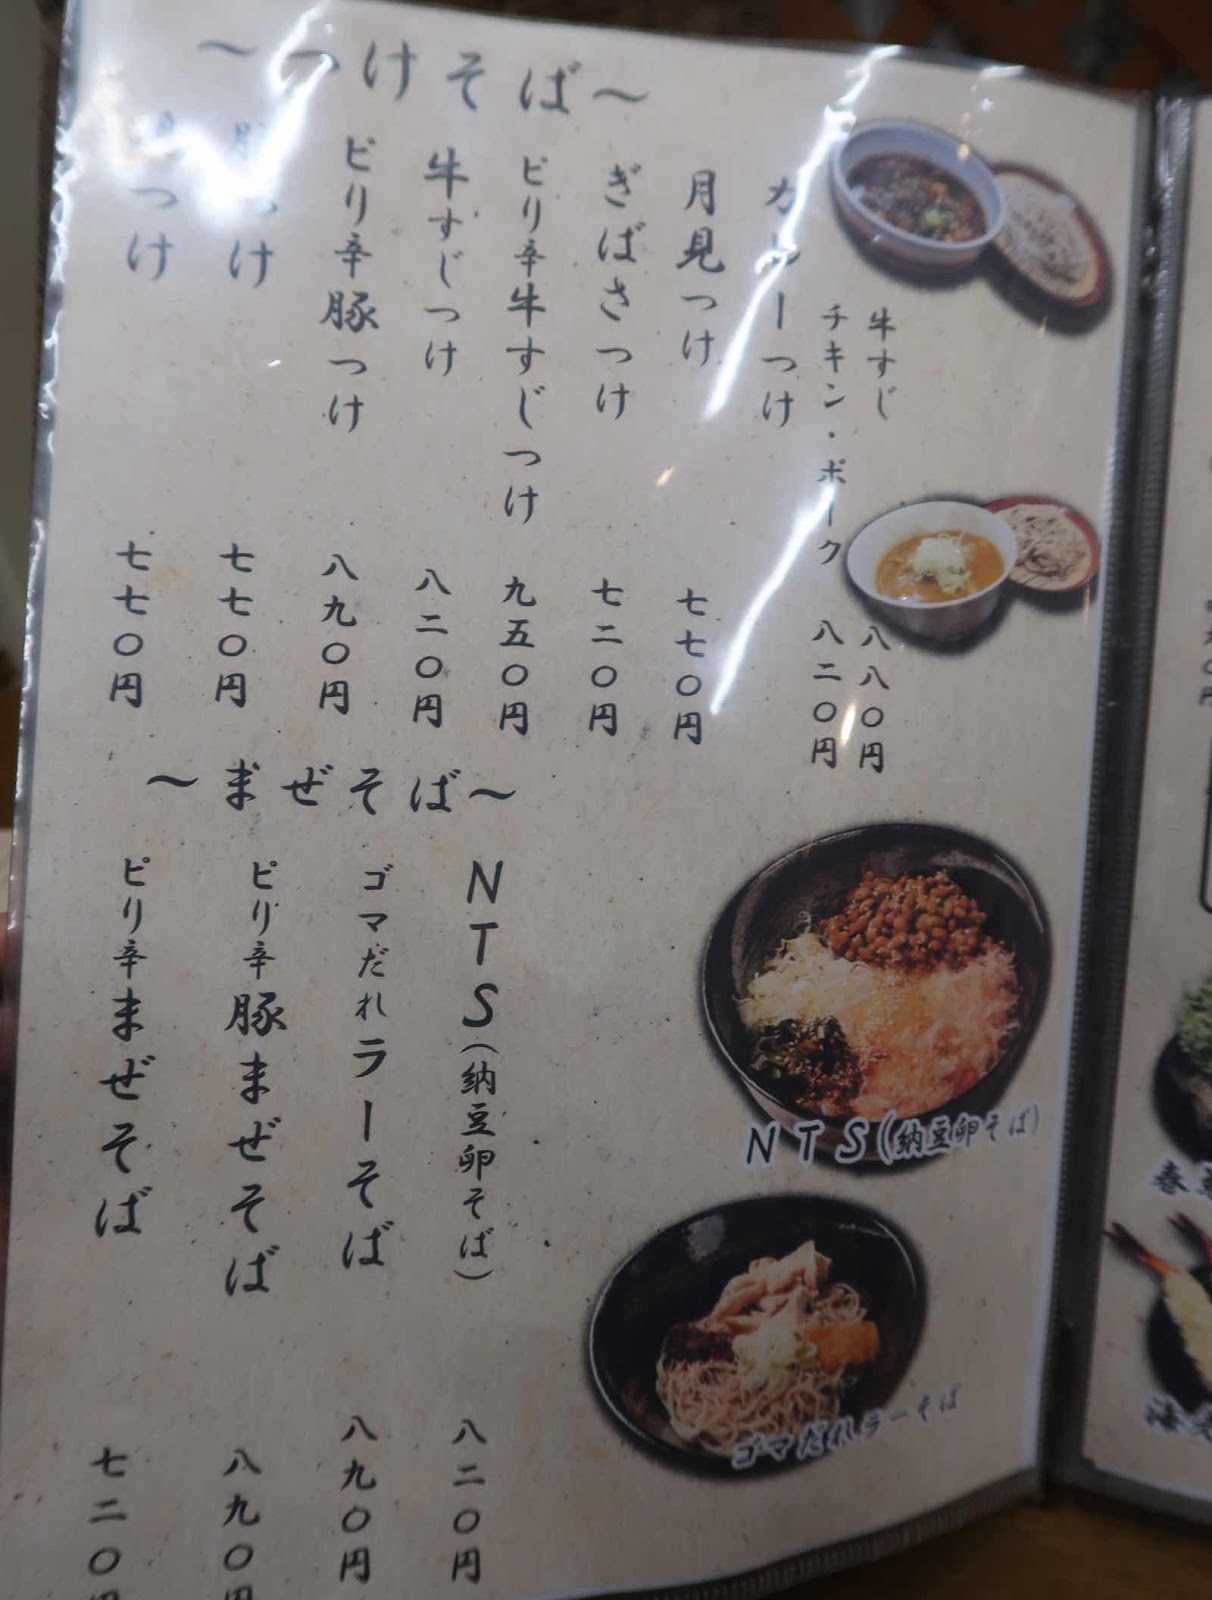 〜つけそば〜
牛すじ 八八〇円
チキン・ポーク 八二〇円
カレーつけ
月見つけ 七七〇円
ぎばさつけ 七二〇円
ピリ辛牛すじつけ 九五〇円
牛すじつけ 八二〇円
ピリ辛豚つけ 八九〇円
豚つけ 七七〇円
つけ 七七〇円
〜まぜそば〜
NTS(納豆卵そば) 八二〇円
ゴマだれラーそば 八九〇円
ピリ辛豚まぜそば 八九〇円
ピリ辛まぜそば 七二〇円
NTS(納豆卵そば)
ゴマだれラーそば
春
海